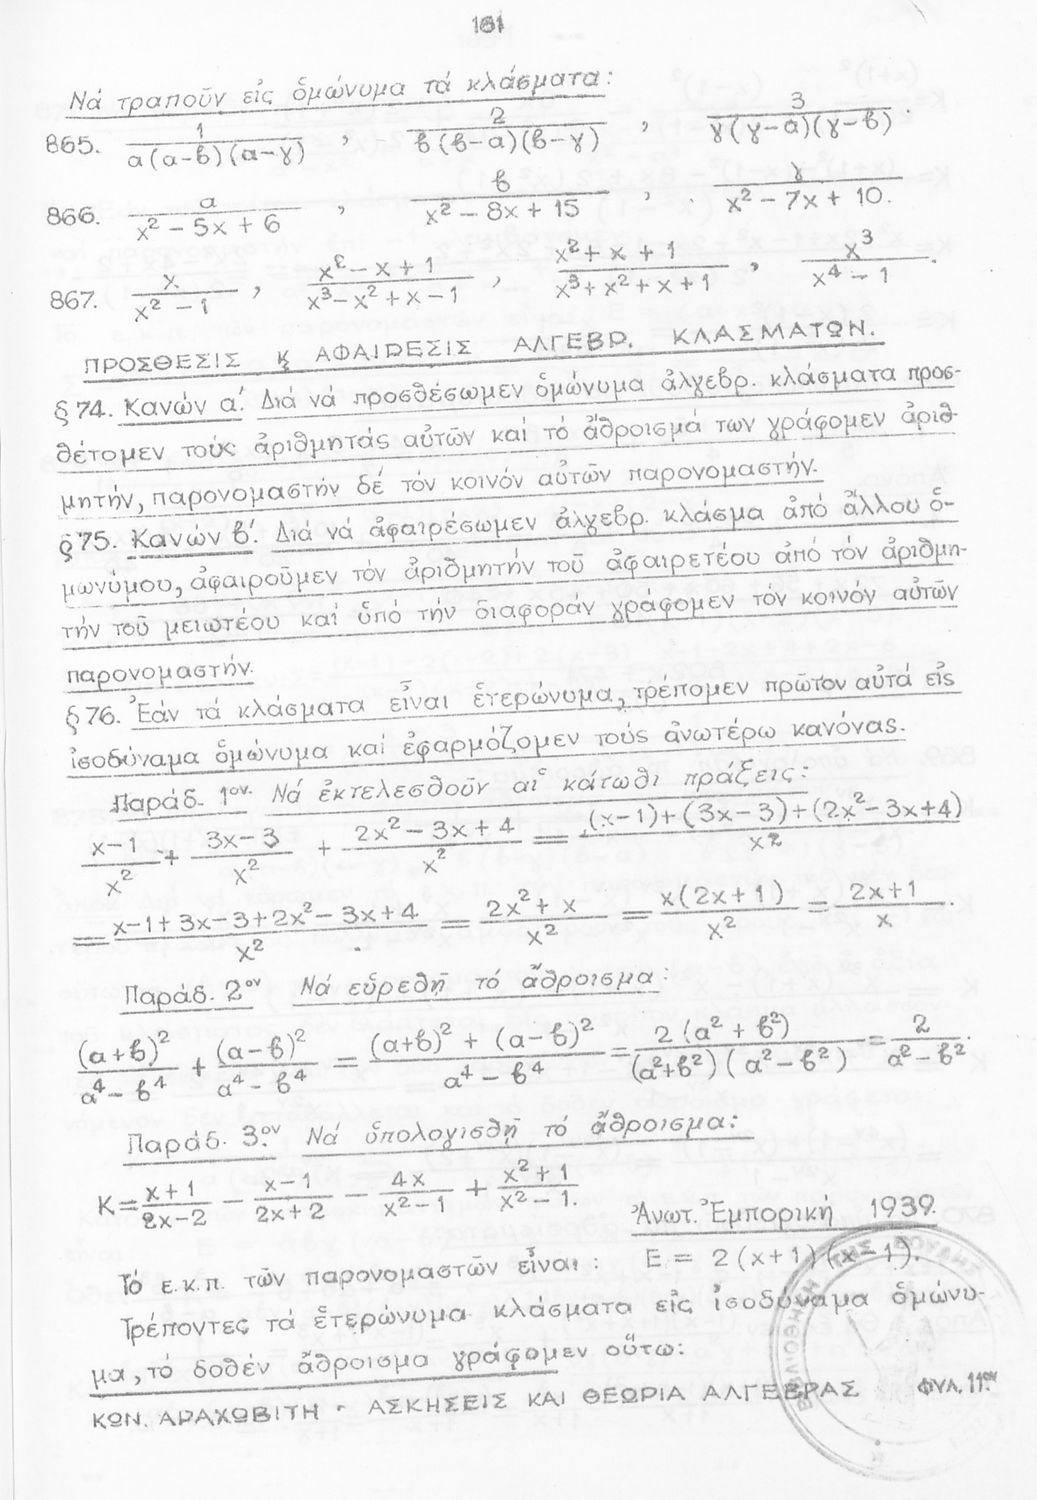 161
Νά τραποῦν εἰς ὁμώνυμα τά κλάσματα:
865. 1/(α(α-β)(α-γ)) , 2/(β(β-α)(β-γ)) , 3/(γ(γ-α)(γ-β)) .
866. α/(x² - 5x + 6) , β/(x² - 8x + 15) , γ/(x² - 7x + 10) .
867. x/(x² - 1) , (x² - x + 1)/(x³ - x² + x - 1) , (x² + x + 1)/(x³ + x² + x + 1) , x³/(x⁴ - 1) .
ΠΡΟΣΘΕΣΙΣ ϗ ΑΦΑΙΡΕΣΙΣ ΑΛΓΕΒΡ. ΚΛΑΣΜΑΤΩΝ.
§74. Κανών α΄. Διά νά προσθέσωμεν ὁμώνυμα ἀλγεβρ. κλάσματα προσ-
θέτομεν τούς ἀριθμητάς αὐτῶν καί τό ἄθροισμά των γράφομεν ἀριθ-
μητήν, παρονομαστήν δέ τόν κοινόν αὐτῶν παρονομαστήν.
§75. Κανών β΄. Διά νά ἀφαιρέσωμεν ἀλγεβρ. κλάσμα ἀπό ἄλλου ὁ-
μωνύμου, ἀφαιροῦμεν τόν ἀριθμητήν τοῦ ἀφαιρετέου ἀπό τόν ἀριθμη-
τήν τοῦ μειωτέου καί ὑπό τήν διαφοράν γράφομεν τόν κοινόν αὐτῶν
παρονομαστήν.
§76. Ἐάν τά κλάσματα εἶναι ἑτερώνυμα, τρέπομεν πρῶτον αὐτά εἰς
ἰσοδύναμα ὁμώνυμα καί ἐφαρμόζομεν τούς ἀνωτέρω κανόνας.
Παράδ. 1ον. Νά ἐκτελεσθοῦν αἱ κάτωθι πράξεις:
(x-1)/x² + (3x-3)/x² + (2x² - 3x + 4)/x² = ((x-1)+(3x-3)+(2x²-3x+4))/x²
= (x-1+3x-3+2x²-3x+4)/x² = (2x²+x)/x² = x(2x+1)/x² = (2x+1)/x .
Παράδ. 2ον Νά εὑρεθῇ τό ἄθροισμα:
(α+β)²/(α⁴-β⁴) + (α-β)²/(α⁴-β⁴) = ((α+β)² + (α-β)²)/(α⁴-β⁴) = 2(α²+β²)/((α²+β²)(α²-β²)) = 2/(α²-β²) .
Παράδ. 3ον Νά ὑπολογισθῇ τό ἄθροισμα:
Κ = (x+1)/(2x-2) - (x-1)/(2x+2) - 4x/(x²-1) + (x²+1)/(x²-1) .
Ἀνωτ. Ἐμπορική 1939.
Τό ε.κ.π. τῶν παρονομαστῶν εἶναι: Ε = 2(x+1)(x-1).
Τρέποντες τά ἑτερώνυμα κλάσματα εἰς ἰσοδύναμα ὁμώνυ-
μα, τό δοθέν ἄθροισμα γράφομεν οὕτω:
ΚΩΝ. ΑΡΑΧΩΒΙΤΗ - ΑΣΚΗΣΕΙΣ ΚΑΙ ΘΕΩΡΙΑ ΑΛΓΕΒΡΑΣ ΦΥΛ. 11ον
ΒΙΒΛΙΟΘΗΚΗ ΤΗΣ ΒΟΥΛΗΣ